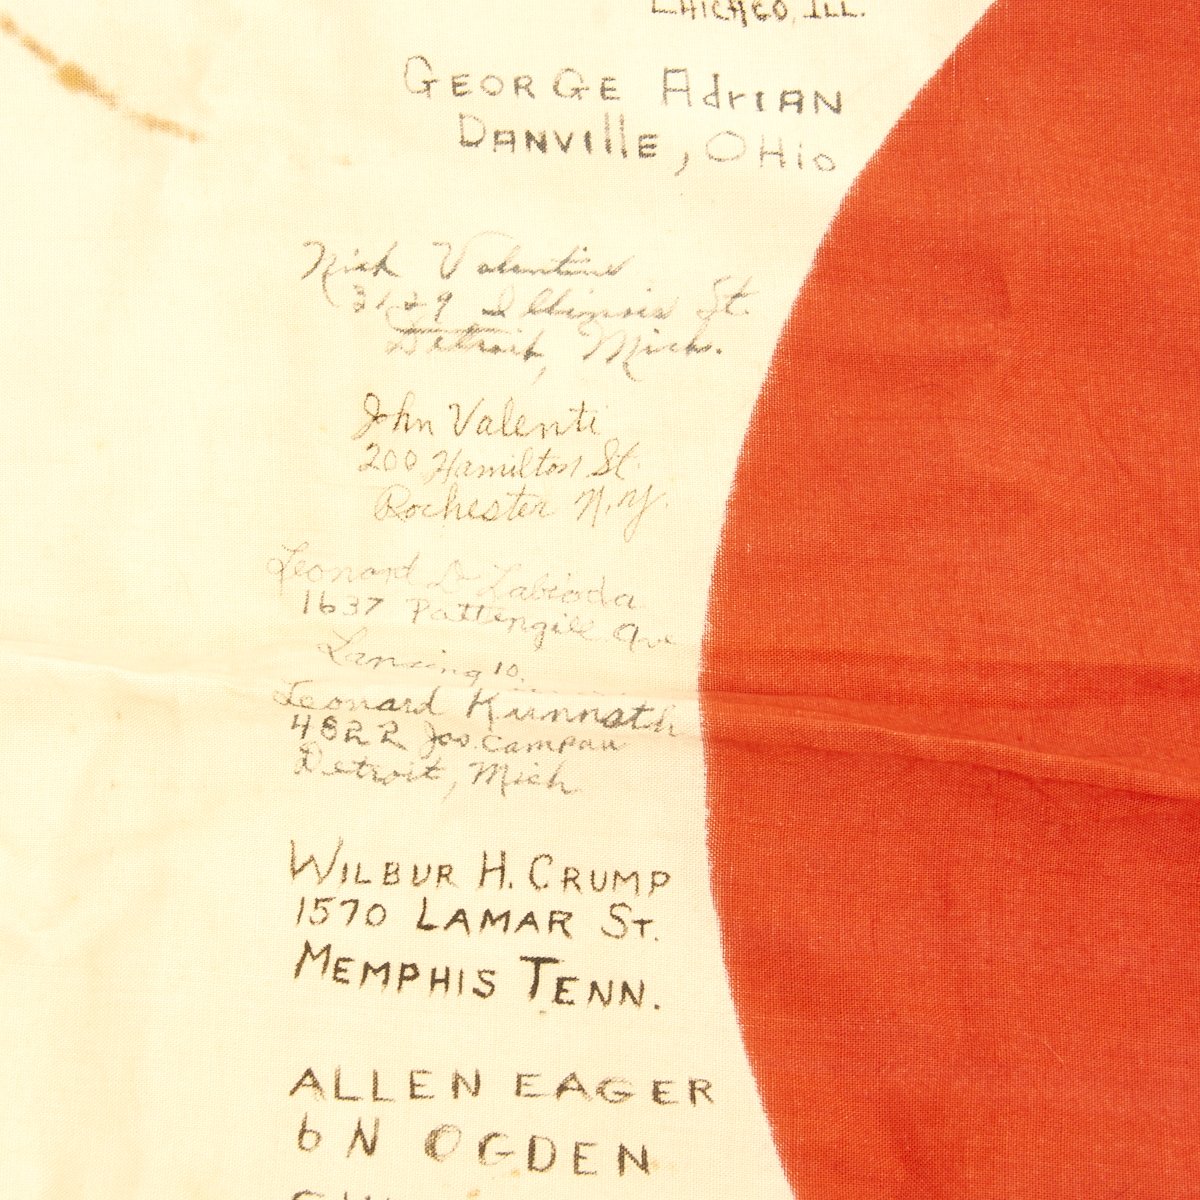 CHICAGO, ILL.
GEORGE AdrIAN
DANVIllE, OHio
Nick Valentine
3129 Illinois St.
Detroit, Mich.
John Valenti
200 Hamilton St.
Rochester N.Y.
Leonard
1637 Pattengill Ave
Lansing 10.
Leonard
4822 Jos. Campau
Detroit, Mich
WILBUR H. CRUMP
1570 LAMAR ST.
MEMPHIS TENN.
ALLEN EAGER
6 N OGDEN